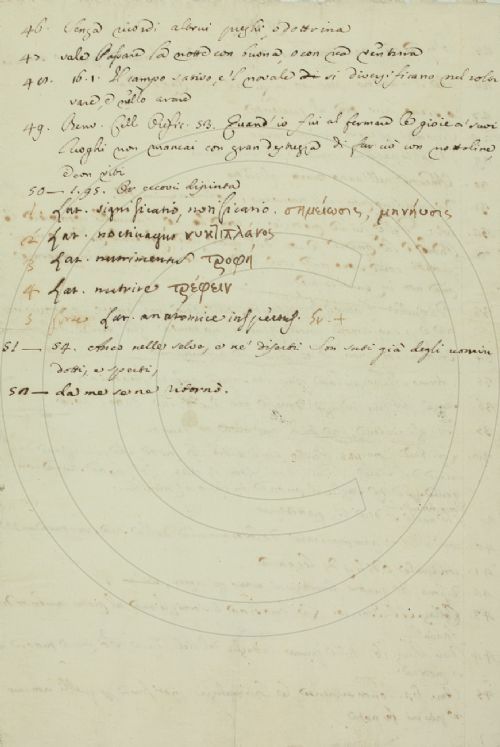 46. Senza ricordi altrui preghi o dottrina
47. vale Passare la notte con buona, o con rea ventura
48. 16. 1. Il campo sativo, e 'l novale si diversificano nel
vare e nello arare
49. Benv. Cell. Orific. 53. Quand' io fui al fermare le gioie a' suoi
luoghi non mancai con gran destrezza di far ciò con nottolini,
e con viti
50 — 1. 95. Or eccovi dipinta
1 Lat. significatio, notificatio. σημείωσις, μηνήωσις
2 Lat. noctivagus νυκτίπλανος
3 Lat. nutrimentum τροφή
4 Lat. nutrire τρέφειν
5 Lat. anatomice
51 — 54. ebbero nelle selve, e ne' diserti son stati già degli uomini
dotti, e sperti,
52 — da me se ne ritornò.